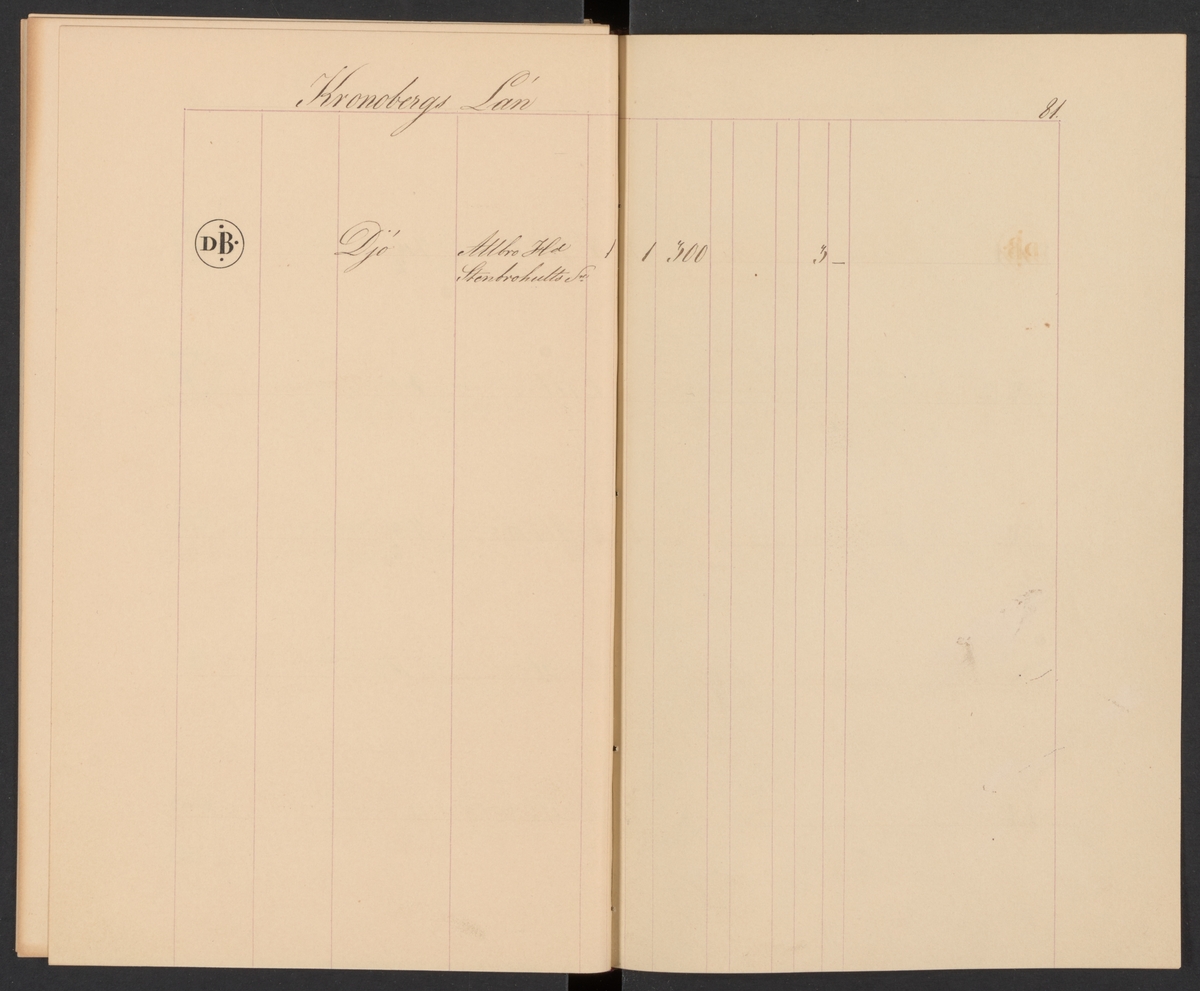 Kronobergs Län
81.
DB. Djö Allbo Hd 1 1 300 3 —
Stenbrohults Sn